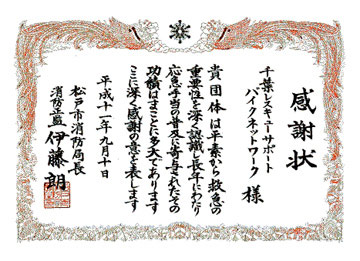 感謝状
千葉レスキューサポート
バイクネットワーク 様
貴団体は平素から救急の
重要性を深く認識し長年にわたり
応急手当の普及に寄与されたその
功績はまことに多大であります
ここに深く感謝の意を表します
平成十一年九月十日
松戸市消防局長
消防正監 伊藤 朗